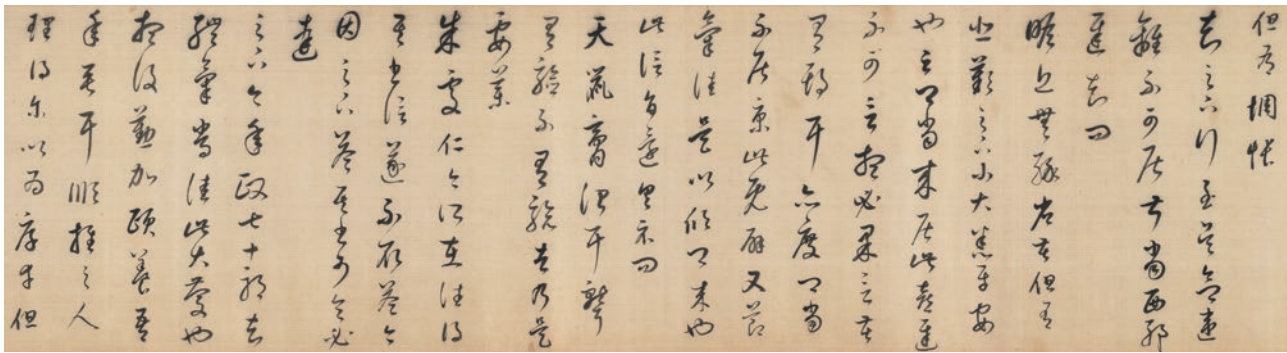 但有惆悵
知足下行至吳念違
離不可居叔當西耶
遲知問
瞻近無緣省苦但有
悲歎足下小大悉平安
也云卿當來居此喜遲
不可言想必果言苦
有期耳亦度卿當
不居京此既避又節
氣佳是以欣卿來也
此信旨還具示問
天鼠膏治耳聾
有驗不有驗者乃是
要藥
朱處仁今何在往得
其書信遂不取答今
因足下答其書可令必
達
足下今年政七十耶知
體氣常佳此大慶也
想復懃加頤養吾
年垂耳順推之人
理得爾以為厚幸但